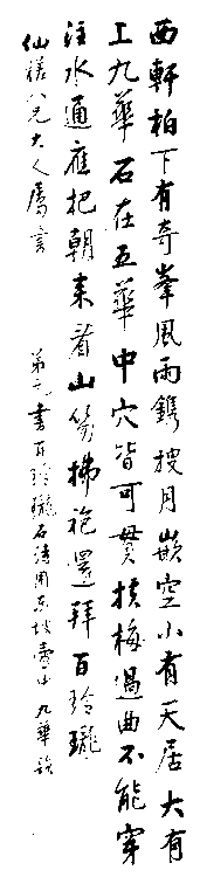 西軒柏下有奇峯風雨鐫搜月嵌空小有天居大有
上九華石在五華中穴皆可貫扶梅過曲不能穿
注水通應把朝來看山笏拂袍還拜百玲瓏
仙槎八兄大人屬書
弟元書百玲瓏石詩用東坡壺中九華韻